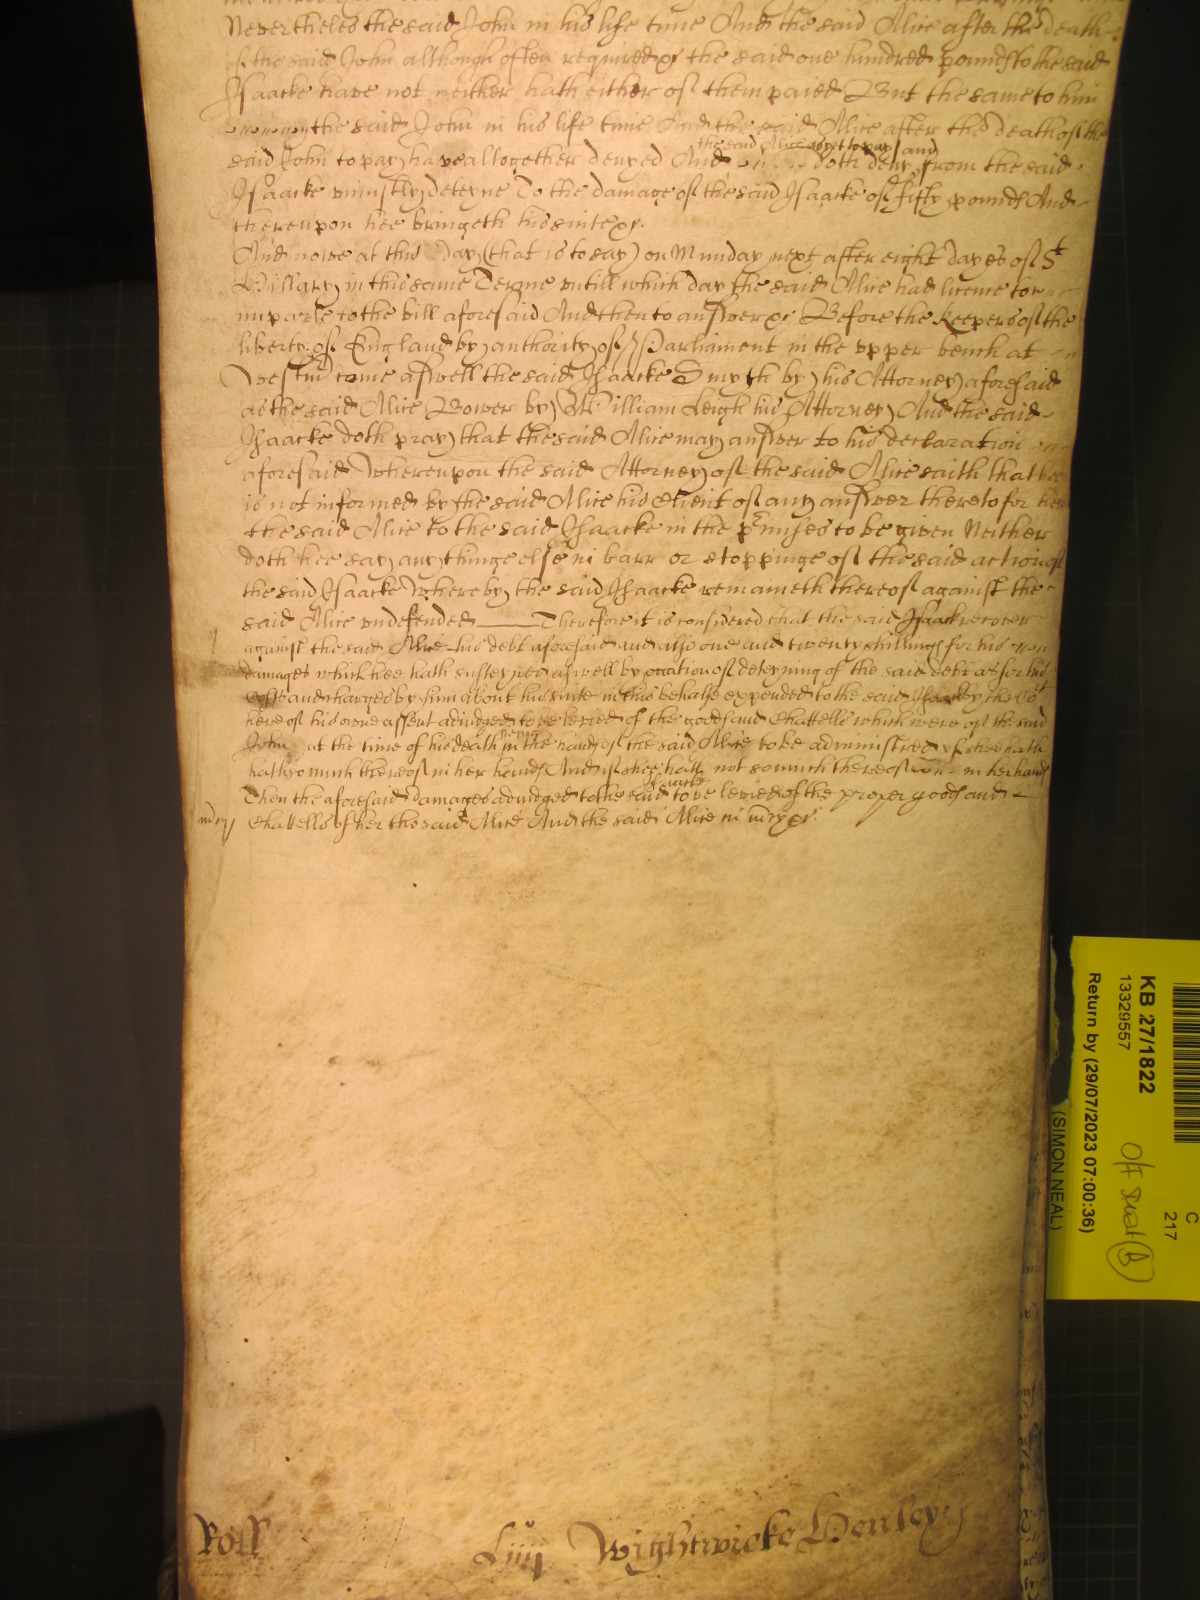 Neverthelesse the said John in his life time And the said Alice after the death
of the said John although often required &c the said one hundred pounds to the said
Isaacke have not neither hath either of them paied But the same to him
the said John in his life time And the said Alice after the death of the
said John to pay have altogether denyed And the said Alice doth deny from the said
Isaacke uniustly deteyne To the damage of the said Isaacke of fifty pounds And
thereupon hee bringeth his suite &c.
And nowe at this day (that is to say) on Munday next after eight dayes of St
Hillary in this same Terme untill which day the said Alice had licence to
imparle to the bill aforesaid And then to answer &c Before the keepers of the
liberty of England by authority of Parliament in the upper bench at
Westmr come aswell the said Isaacke Smyth by his Attorney aforesaid
as the said Alice Bower by William Leigh his Attorney And the said
Isaacke doth pray that the said Alice may answer to his declaration
aforesaid Whereupon the said Attorney of the said Alice saith that hee
is not informed by the said Alice his Client of any answer thereto for her
the said Alice to the said Isaacke in the pmisses to be given Neither
doth hee say any thinge else in barr or stoppinge of the said action of
the said Isaacke Whereby the said Isaacke remaineth thereof against the
said Alice undefended Therefore it is considered that the said Isaack recover
against the said Alice his debt aforesaid and also one and twenty shillings for his
damages which hee hath susteyned aswell by occation of deteyning of the said debt as for his
Costs and charges by him about his suite in this behalfe expended to the said Isaacke by the Cort
here of his owne assent adiudged to be levied of the goods and Chattells which were of the said
John at the time of his death being in the hands of the said Alice to be administred yf shee hath
hath so much thereof in her hands And if shee hath not so much thereof in her hands
Then the aforesaid damages adiudged to the said Isaacke to be levied of the proper goods and
mdcy Chattells of her the said Alice And the said Alice in mdcy &c.
Roll Liiij Wightwicke Henley
KB 27/1822
13329557
Return by (29/07/2023 07:00:36)
(SIMON NEAL)
C
217